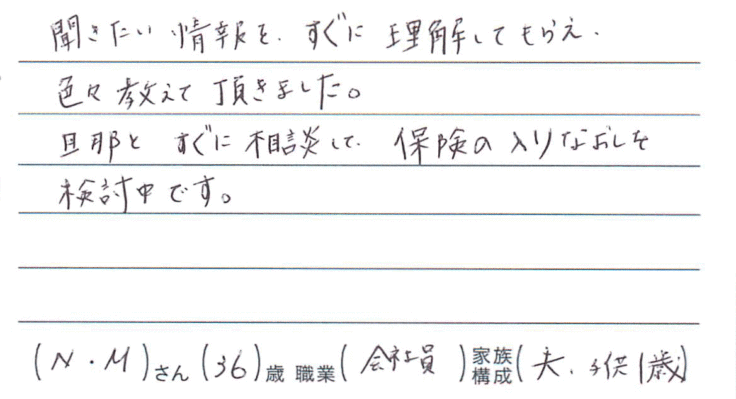 聞きたい情報を、すぐに理解してもらえ、
色々教えて頂きました。
旦那とすぐに相談して、保険の入りなおしを
検討中です。
(N・M)さん(36)歳 職業(会社員)家族構成(夫、子供1歳)